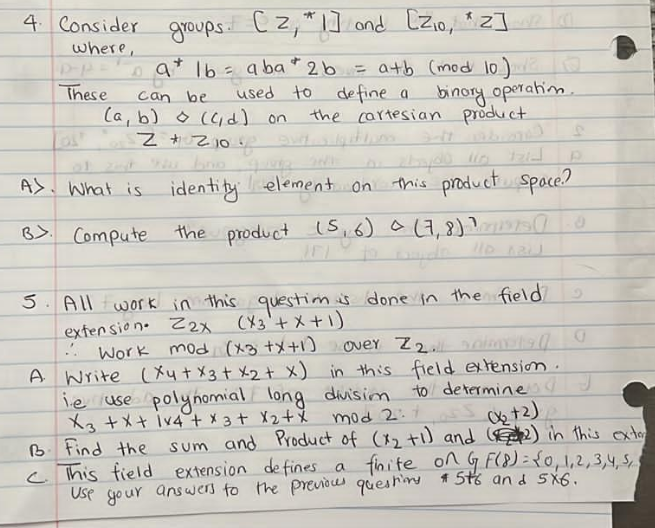 4. Consider groups. [Z, *1] and [Z10, *2]
where,
a* 1b = aba* 2b = a+b (mod 10)
These can be used to define a binary operation.
(a, b) ◇ (c,d) on the cartesian product
Z * Z10.
A>. What is identity element on this product space?
B>. Compute the product (5,6) ◇ (7,8)?
5. All work in this question is done in the field
extension. Z2x (x3 + x + 1)
∴ Work mod (x3 + x+1) over Z2.
A Write (x4 + x3 + x2 + x) in this field extension.
i.e use polynomial long division to determine
x3 + x + 1v4 + x3 + x2+x mod 2:
(x2+2)
B. Find the sum and Product of (x2 +1) and in this
C. This field extension defines a finite on GF(8) = {0,1,2,3,4,5,
Use your answers to the previous questions * 5+6 and 5x6.